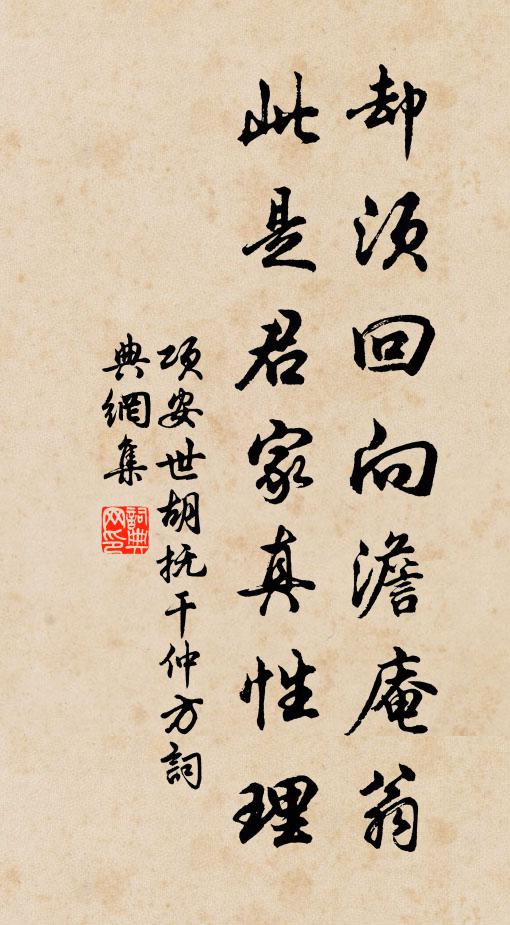 却须回向澹庵翁
此是君家真性理
项安世胡抚干仲方詞
典網集
詞典
网印